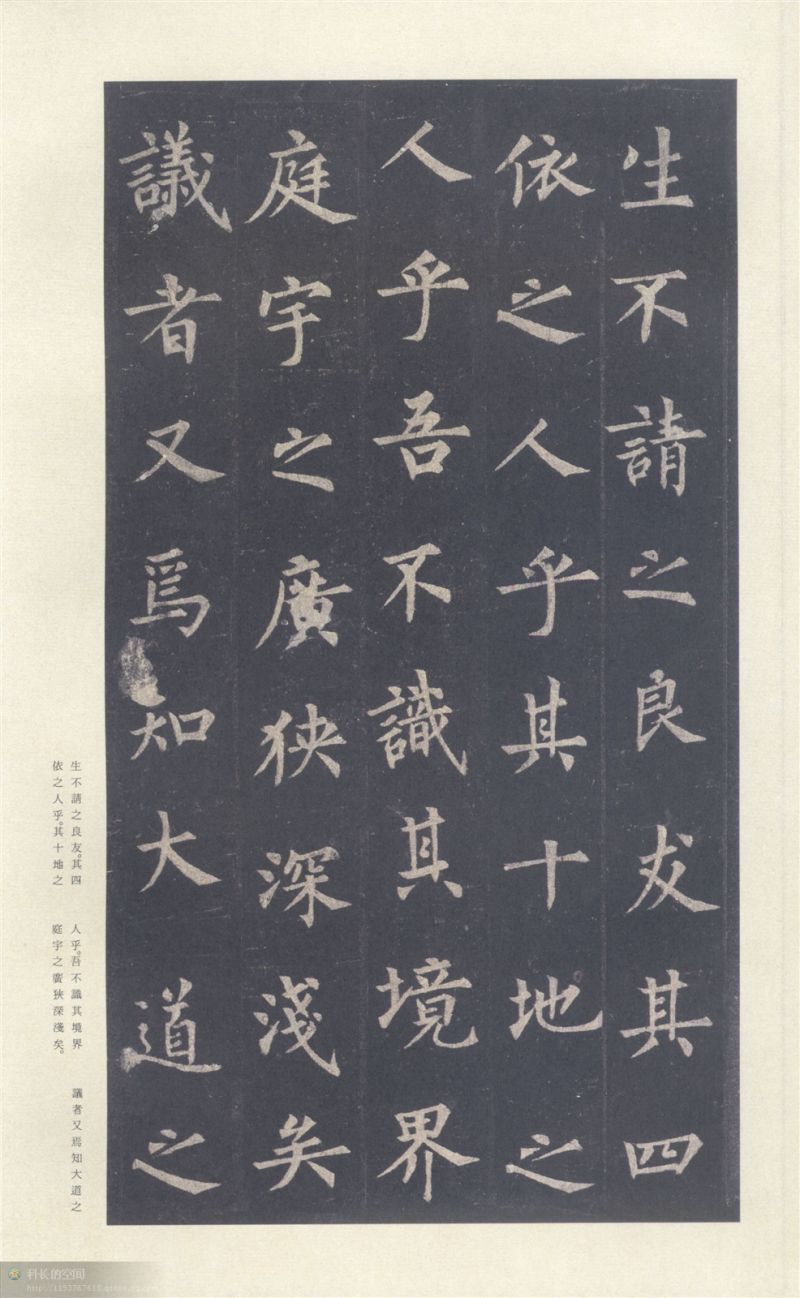 生不請之良友其四
依之人乎其十地之
人乎吾不識其境界
庭宇之廣狹深淺矣
議者又焉知大道之
生不請之良友。其四
依之人乎。其十地之
人乎。吾不識其境界
庭宇之廣狹深淺矣。
議者又焉知大道之
科长的空间